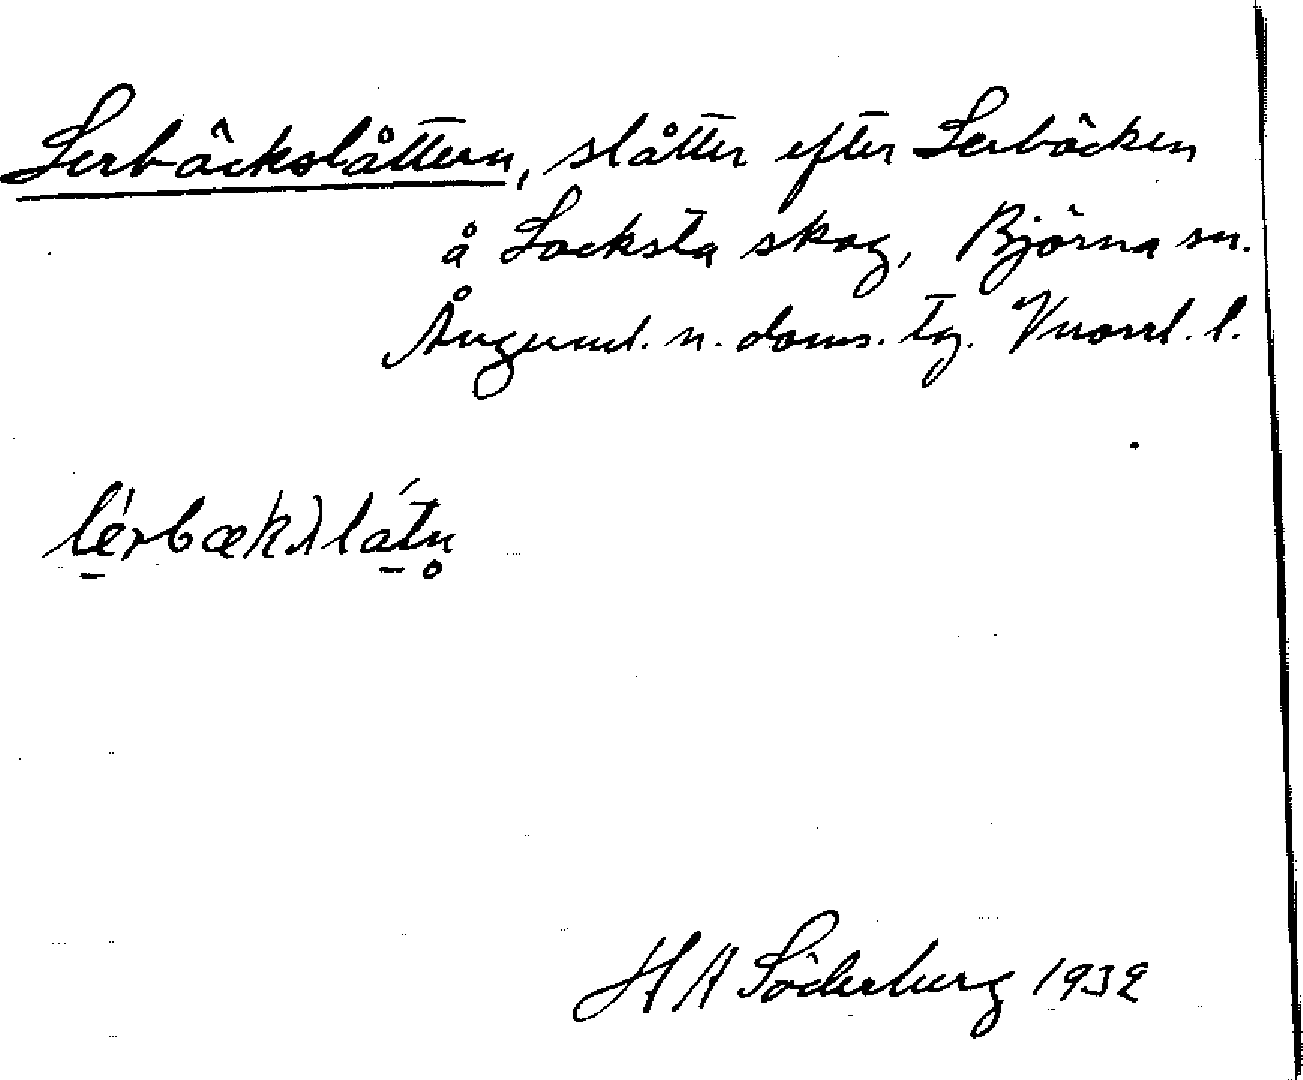 Lerbäckslåttern, slåtter efter Lerbäcken
å Locksta skog, Björna sn.
Ångerml. n. doms. tg. Vnorrl. l.
H A Söderberg 1932